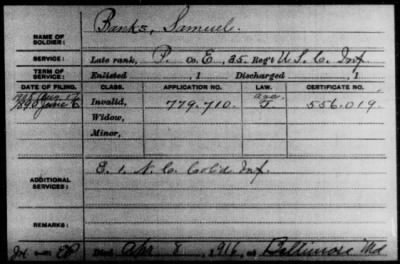 Banks, Samuel.
NAME OF SOLDIER:
SERVICE: Late rank, P. Co. E, 35 Reg't U. S. C. Inf.
TERM OF SERVICE: Enlisted , 1 Discharged , 1
DATE OF FILING. CLASS. APPLICATION NO. LAW. CERTIFICATE NO.
Invalid, 779.710. 556.019.
Widow,
Minor,
ADDITIONAL SERVICES: E. 1. N. C. Col'd Inf.
REMARKS:
Died Apr 8, 1916, at Baltimore Md